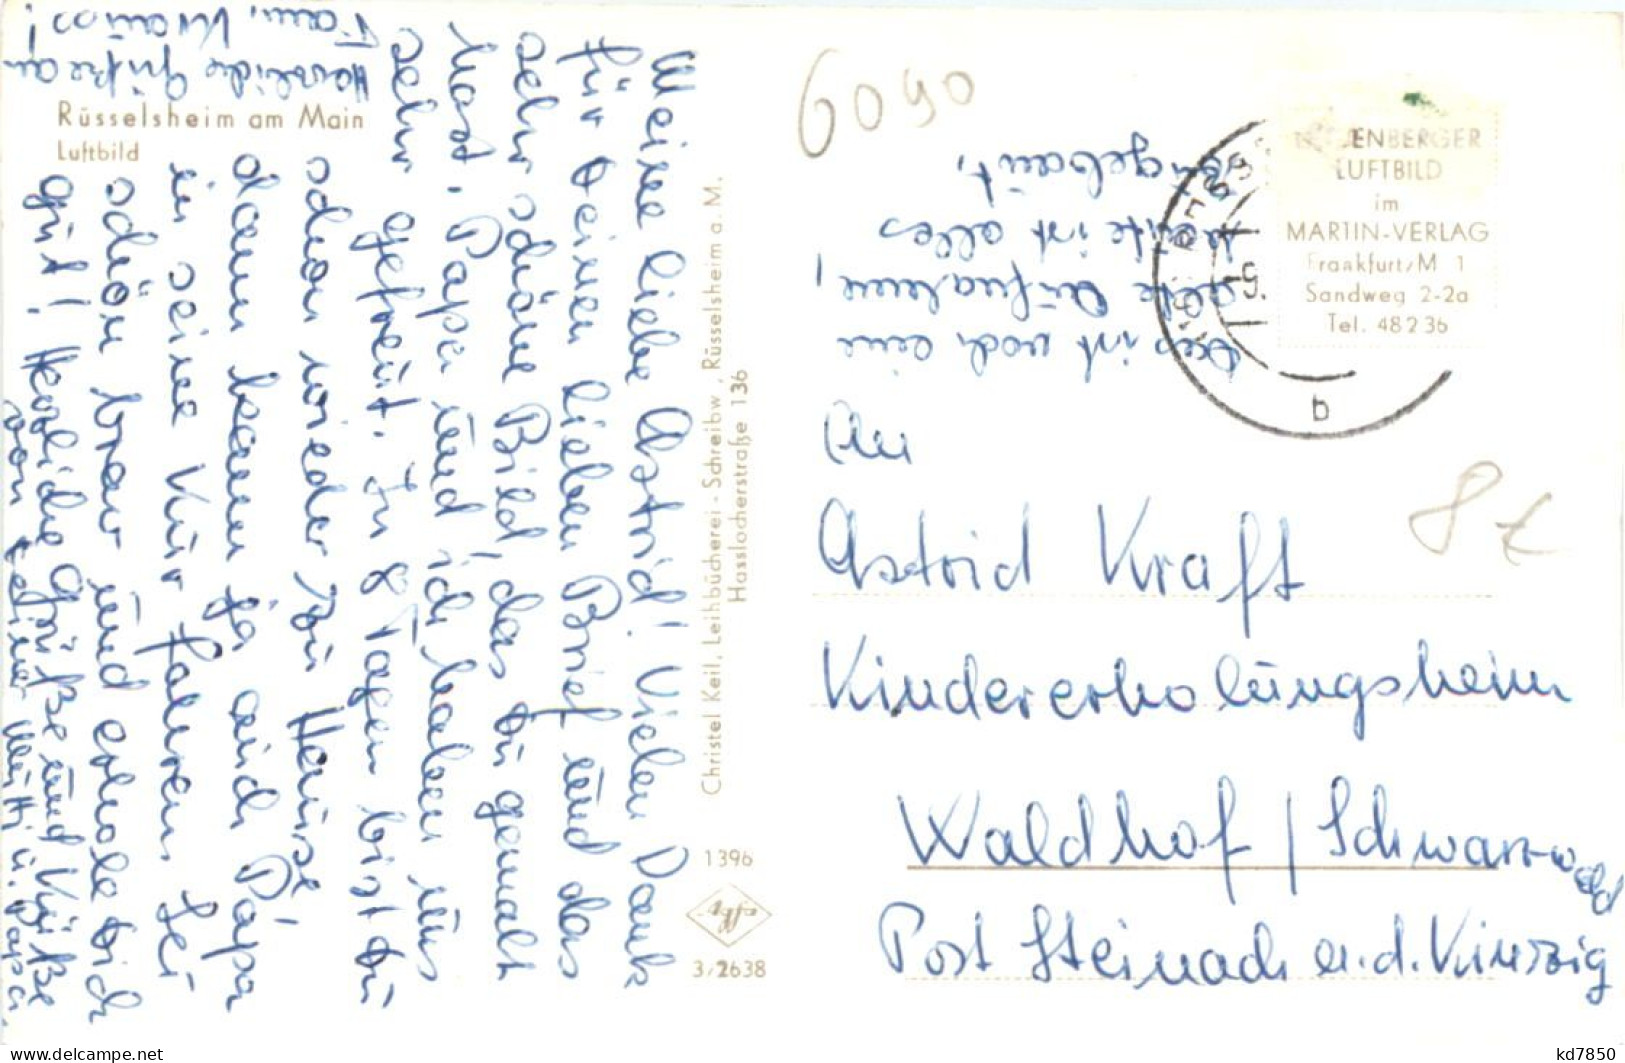 Meine liebe Astrid! Vielen Dank
für deinen lieben Brief und das
sehr schöne Bild, das du gemalt
hast. Papa und ich haben uns
sehr gefreut. In 8 Tagen bist du
schon wieder zu Hause,
dann kann ja auch Papa
in seine Kur fahren. Sei
schön brav und erhole dich
gut! Herzliche Grüße und Küße
von deiner Mutti u. Papa.
Herzliche Grüße an
Fam. Kraus!
Rüsselsheim am Main
Luftbild
Christel Keil, Leihbücherei - Schreibw., Rüsselsheim a. M.
Hasslocherstraße 136
1396
3/2638
6090
Das ist noch eine
alte Aufnahme,
heute ist alles
angebaut.
ENBERGER
LUFTBILD
im
MARTIN-VERLAG
Frankfurt/M 1
Sandweg 2-2a
Tel. 48236
b
An
Astrid Kraft
Kindererholungsheim
Waldhof / Schwarzwald
Post Steinach a.d. Kinzig
kd7850